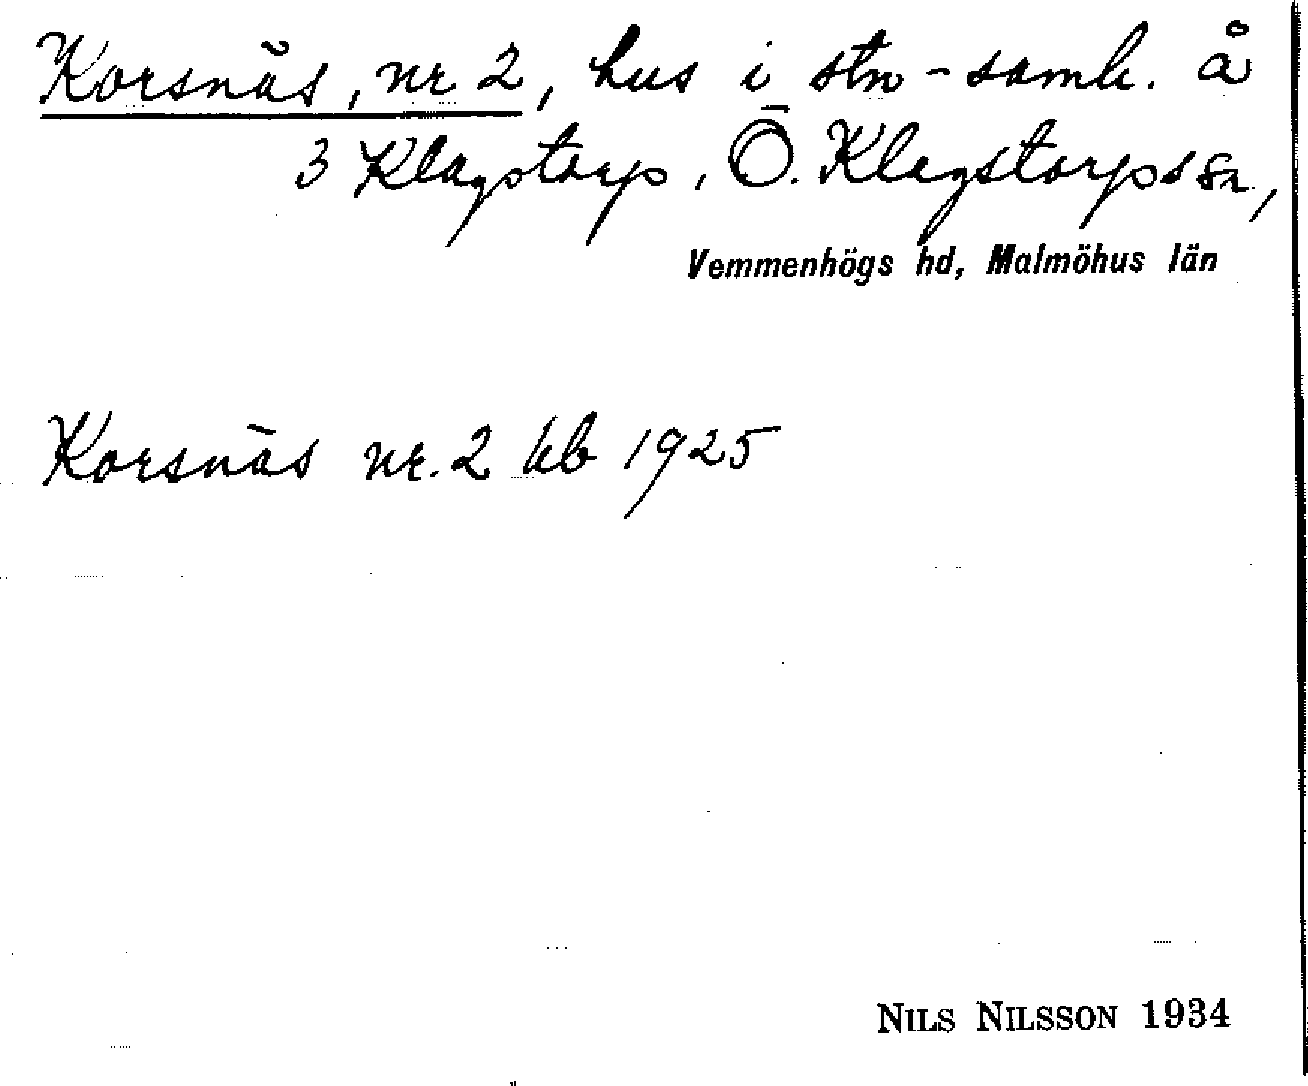 Korsnäs, nr 2, hus i stn-samh. å
3 Klagstorp, Ö. Klagstorps sn,
Vemmenhögs hd, Malmöhus län
Korsnäs nr. 2 kb 1925
NILS NILSSON 1934